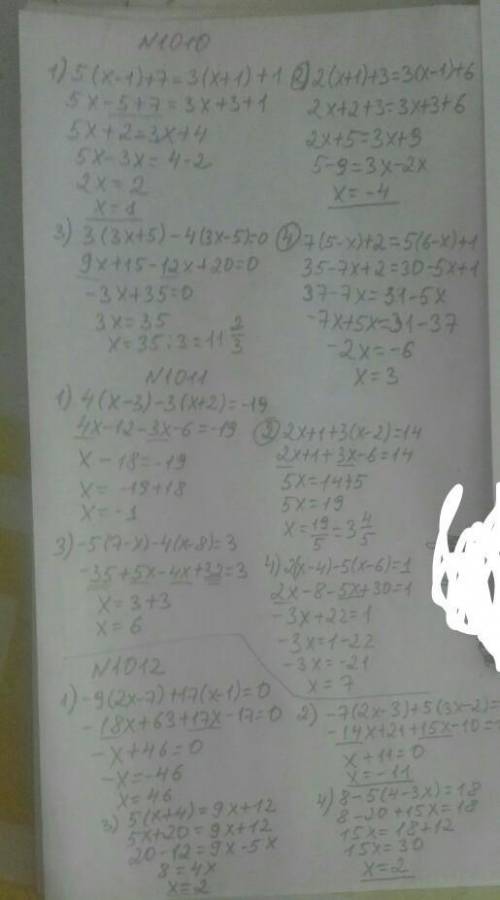 N1010
1) 5(x-1)+7=3(x+1)+1
5x-5+7=3x+3+1
5x+2=3x+4
5x-3x=4-2
2x=2
x=1
2) 2(x+1)+3=3(x-1)+6
2x+2+3=3x+3+6
2x+5=3x+9
5-9=3x-2x
x=-4
3) 3(3x+5)-4(3x-5)=0
9x+15-12x+20=0
-3x+35=0
3x=35
x=35:3=11 2/3
4) 7(5-x)+2=5(6-x)+1
35-7x+2=30-5x+1
37-7x=31-5x
-7x+5x=31-37
-2x=-6
x=3
N1011
1) 4(x-3)-3(x+2)=-19
4x-12-3x-6=-19
x-18=-19
x=-19+18
x=-1
2) 2x+1+3(x-2)=14
2x+1+3x-6=14
5x=14+5
5x=19
x=19/5=3 4/5
3) -5(7-x)-4(x-8)=3
-35+5x-4x+32=3
x=3+3
x=6
4) 2(x-4)-5(x-6)=1
2x-8-5x+30=1
-3x+22=1
-3x=1-22
-3x=-21
x=7
N1012
1) -9(2x-7)+17(x-1)=0
-18x+63+17x-17=0
-x+46=0
-x=-46
x=46
2) -7(2x-3)+5(3x-2)=
-14x+21+15x-10=
x+11=0
x=-11
3) 5(x+4)=9x+12
5x+20=9x+12
20-12=9x-5x
8=4x
x=2
4) 8-5(4-3x)=18
8-20+15x=18
15x=18+12
15x=30
x=2